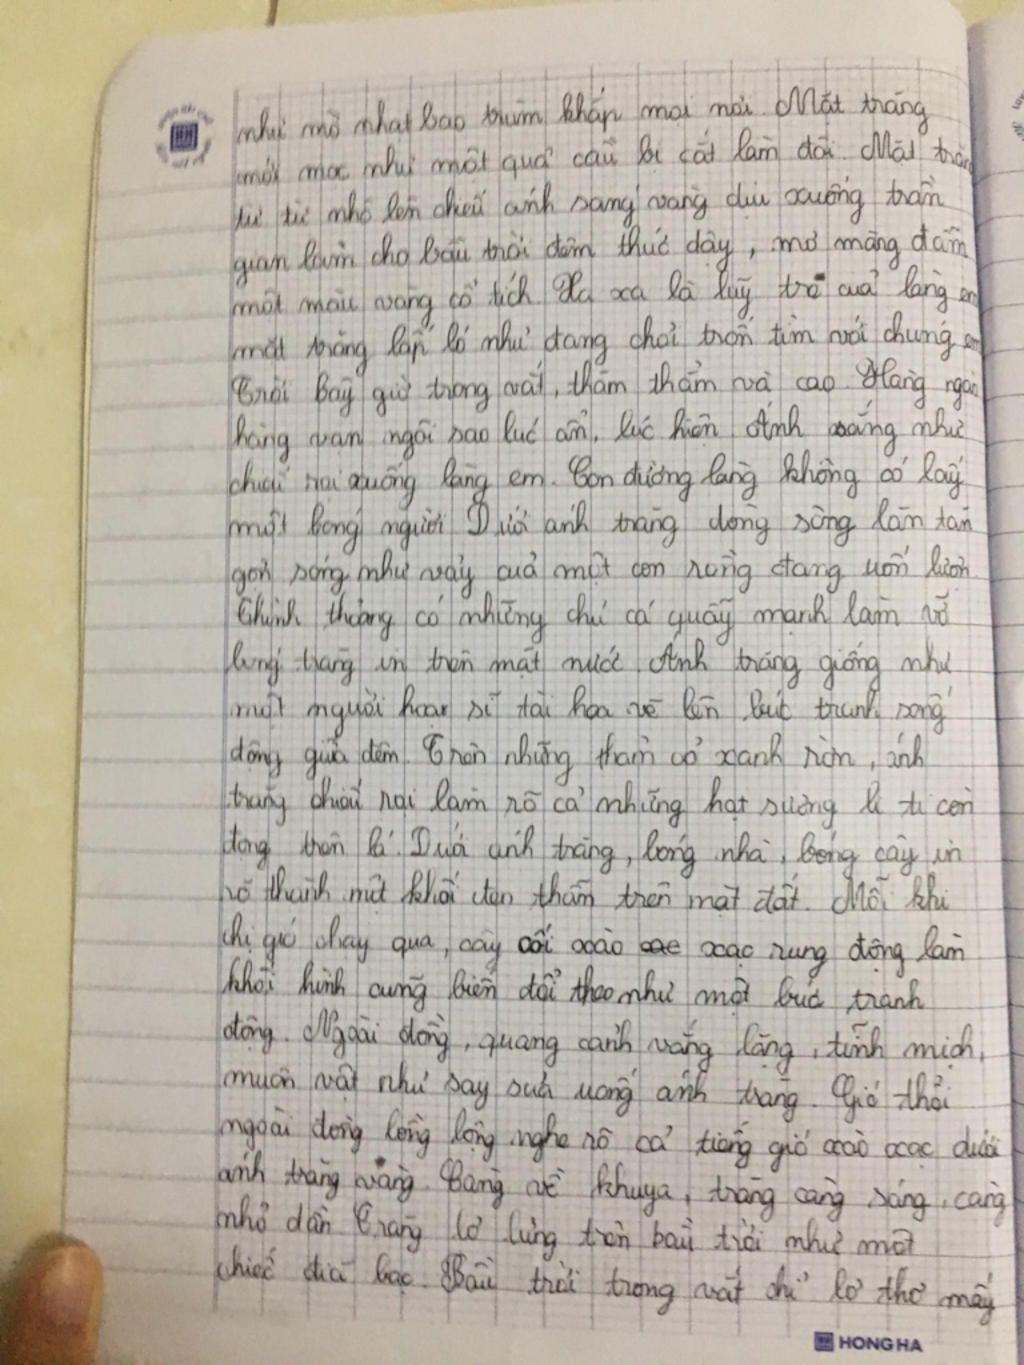 như mờ nhạt bao trùm khắp mọi nơi. Mặt trăng
mới mọc như một quả cầu bị cắt làm đôi. Mặt trăng
từ từ nhô lên chiếu ánh sáng vàng dịu xuống trần
gian làm cho bầu trời đêm thức dậy, mơ màng đẫm
một màu vàng cổ tích. Xa xa là luỹ tre của làng em
mặt trăng lấp ló như đang chơi trốn tìm với chúng em
Trời bây giờ trong vắt, thăm thẳm và cao. Hàng ngàn
hàng vạn ngôi sao lúc ẩn, lúc hiện. Ánh sáng như
chiếu rọi xuống làng em. Con đường làng không có lấy
một bóng người. Dưới ánh trăng dòng sông lăn tăn
gợn sóng như vảy của một con rồng đang uốn lượn.
Thỉnh thoảng có những chú cá quẫy mạnh làm vỡ
bóng trăng in trên mặt nước. Ánh trăng giống như
một người hoạ sĩ tài hoa vẽ lên bức tranh sống
động giữa đêm. Trên những thảm cỏ xanh rờn, ánh
trăng chiếu rọi làm rõ cả những hạt sương li ti còn
đọng trên lá. Dưới ánh trăng, bóng nhà, bóng cây in
rõ thành một khối đen thẫm trên mặt đất. Mỗi khi
chị gió chạy qua, cây cối xào xạc rung động làm
khối hình cũng biến đổi theo như một bức tranh
động. Ngoài đồng, quang cảnh vắng lặng, tĩnh mịch,
muôn vật như say sưa uống ánh trăng. Gió thổi
ngoài đồng lồng lộng nghe rõ cả tiếng gió xào xạc dưới
ánh trăng vàng. Càng về khuya, trăng càng sáng, càng
nhỏ dần. Trăng lơ lửng trên bầu trời như một
chiếc đĩa bạc. Bầu trời trong vắt chỉ lơ thơ mấy
HONG HA